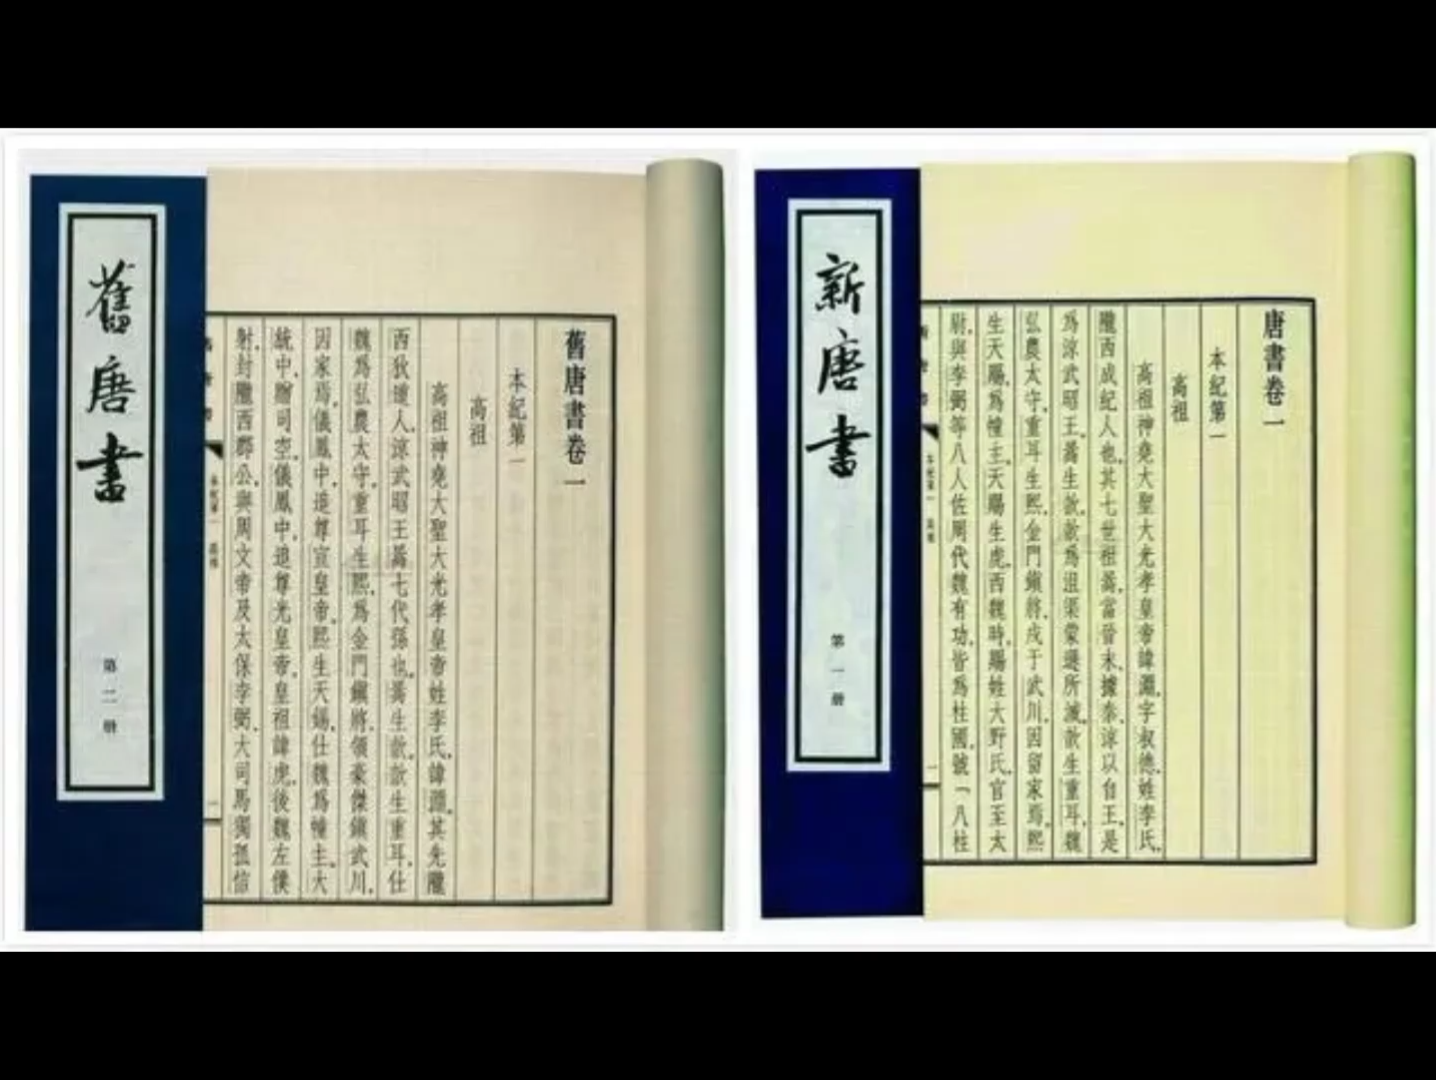 舊唐書
第二册
舊唐書卷一
本紀第一
高祖
高祖神堯大聖大光孝皇帝姓李氏，諱淵。其先隴
西狄道人，涼武昭王暠七代孫也。暠生歆。歆生重耳，仕
魏爲弘農太守。重耳生熙，爲金門鎮將，領豪傑鎮武川，
因家焉。儀鳳中，追尊宣皇帝。熙生天錫，仕魏爲幢主。大
統中，贈司空。儀鳳中，追尊光皇帝。皇祖諱虎，後魏左僕
射，封隴西郡公，與周文帝及太保李弼、大司馬獨孤信
本紀第一
高祖
一
新唐書
第一册
唐書卷一
本紀第一
高祖
高祖神堯大聖大光孝皇帝諱淵，字叔德，姓李氏，
隴西成紀人也。其七世祖暠，當晉末，據秦、涼以自王，是
爲涼武昭王。暠生歆，歆爲沮渠蒙遜所滅。歆生重耳，魏
弘農太守。重耳生熙，金門鎮將，戍于武川，因留家焉。熙
生天賜，爲幢主。天賜生虎，西魏時，賜姓大野氏，官至太
尉，與李弼等八人佐周代魏有功，皆爲柱國，號「八柱
本紀第一
高祖
一